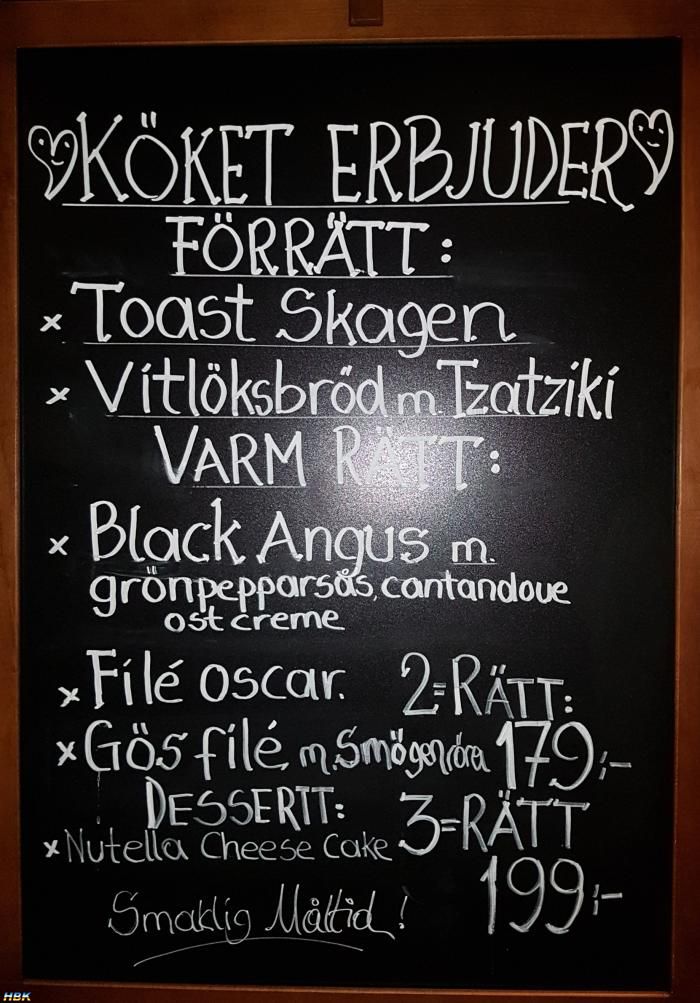 KÖKET ERBJUDER
FÖRRÄTT:
x Toast Skagen
x Vitlöksbröd m. Tzatziki
VARM RÄTT:
x Black Angus m.
grönpepparsås, cantandoue
ost creme
x Filé oscar.
2=RÄTT:
x Gös filé m. Smögenröra
179:-
DESSERTT:
3=RÄTT
x Nutella Cheese Cake
199:-
Smaklig Måltid!
HBK